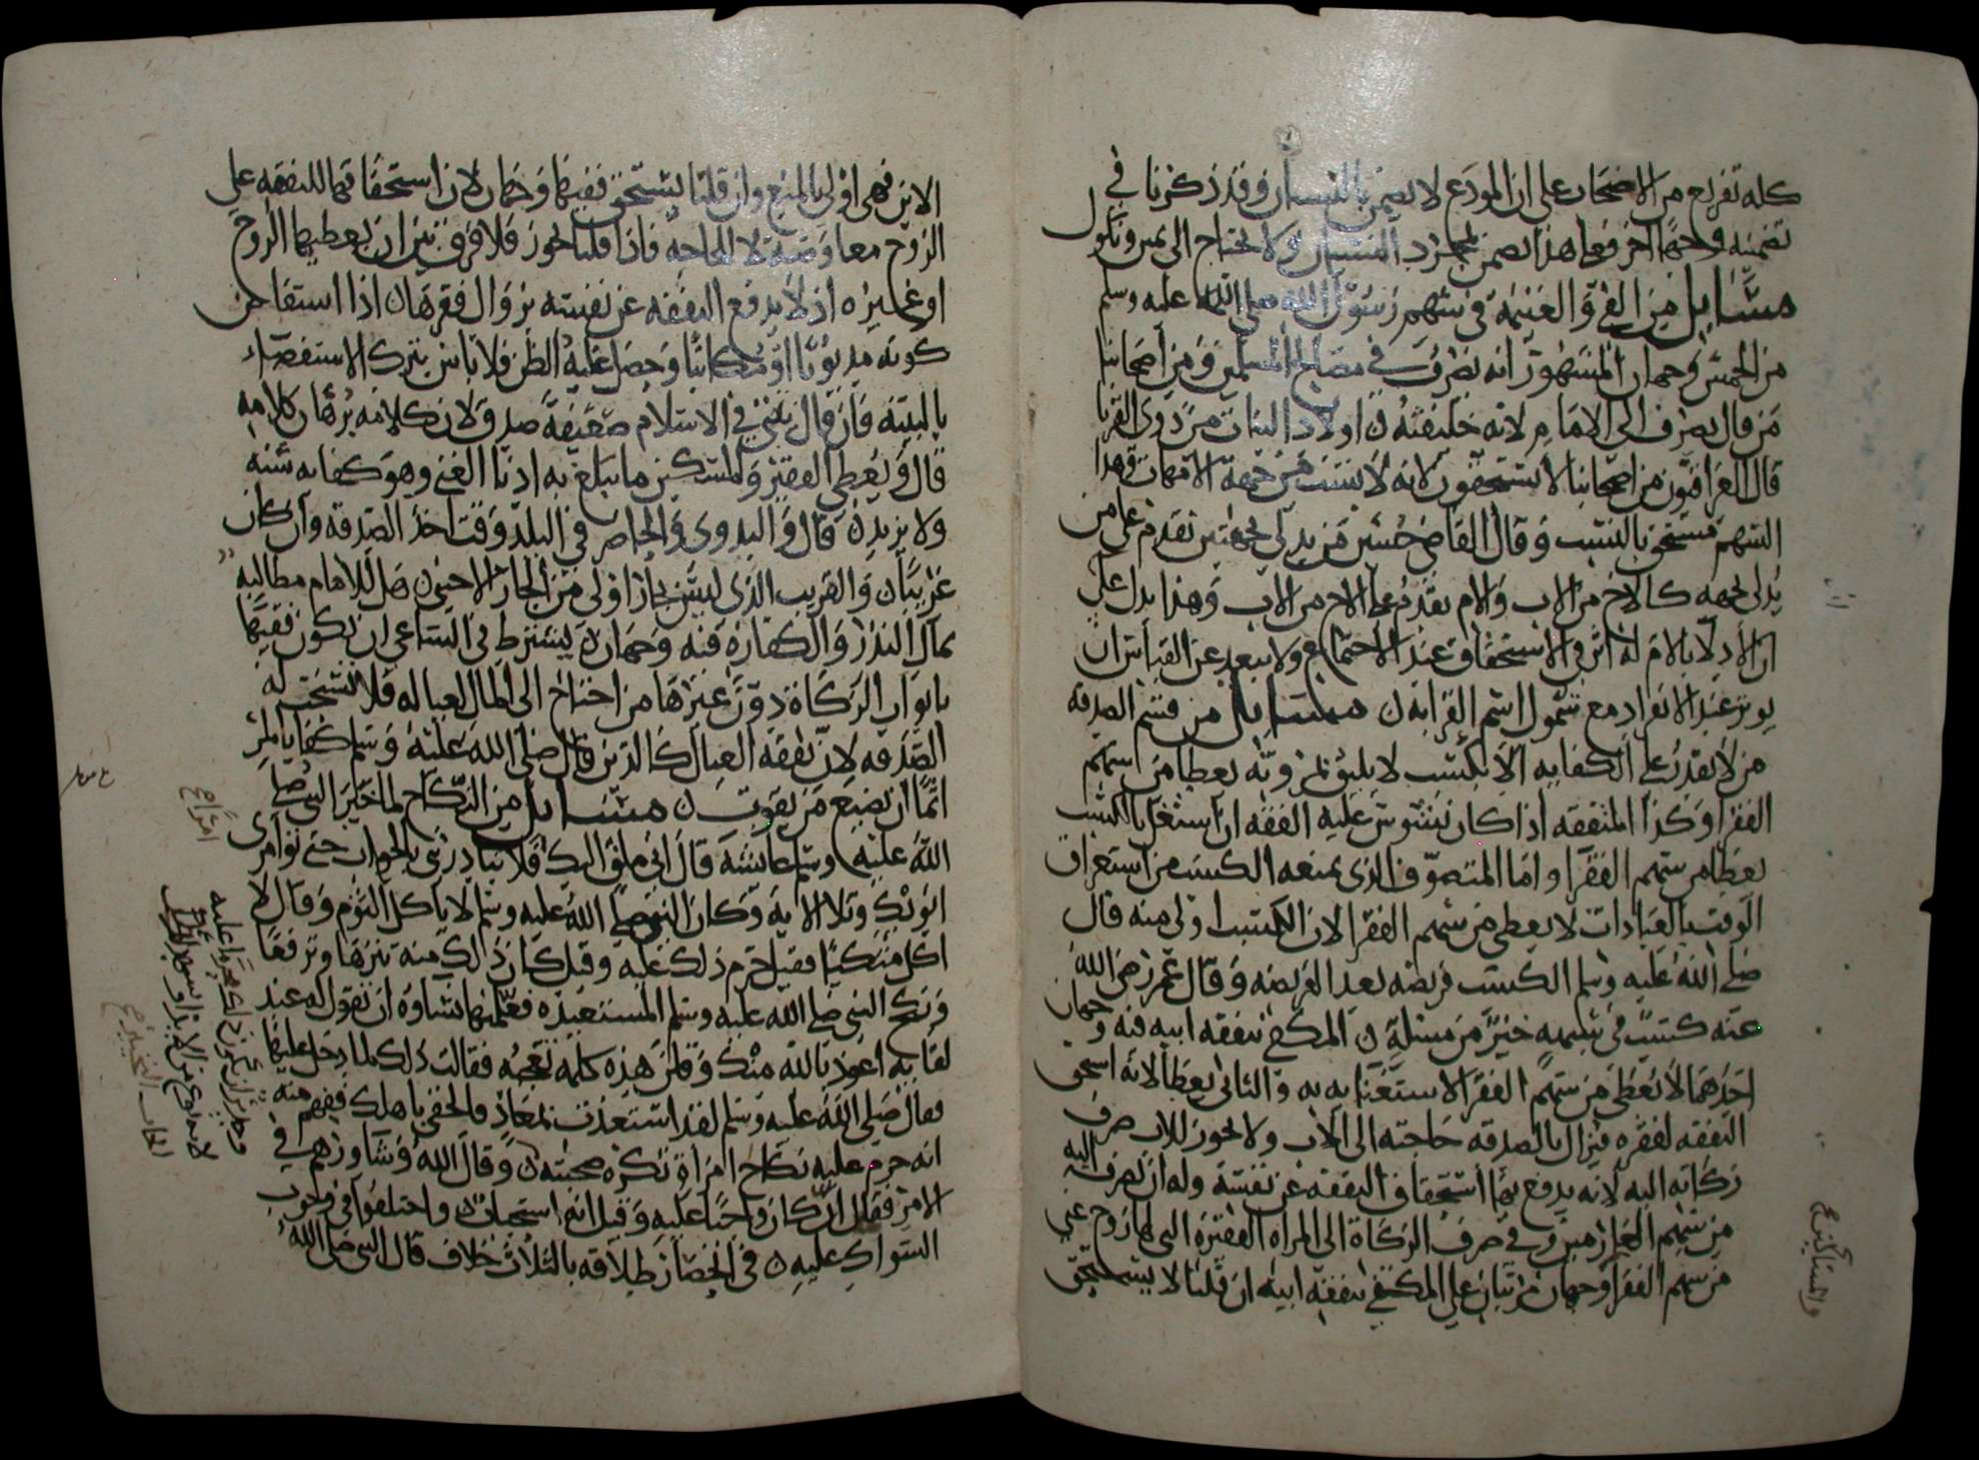 كله تفريع من الاصحاب على ان المودع لا يضمن بالنسيان وقد ذكرنا في
تضمينه وجها اخر فعلى هذا يضمن بمجرد النسيان ولا يحتاج الى يمين ونكول
مسايل من الفي والغنيمة في سهم رسول الله صلى الله عليه وسلم
من الخمس وجهان المشهور انه يصرف في مصالح المسلمين ومن اصحابنا
من قال يصرف الى الامام لانه خليفته ن اولاد البنات من ذوي القربا
قال العراقيون من اصحابنا لا يستحقون لانه لا ينسب من جهة الامهات وهذا
السهم مستحق بالنسب وقال القاضي حسين من يدلي بجهتين تقدم على من
يدلي بجهه كالاخ من الاب والام يقدم على الاخ من الاب وهذا يدل على
ان الادلا بالام له اثر في الاستحقاق عند الاجتماع ولا يبعد عن القياس ان
يوثر عند الانفراد مع شمول اسم القرابه ن مسايل من قسم الصدقه
من لا يقدر على الكفايه الا بكسب لا يليق بمروته يعطا من سهم
الفقرا وكذا المتفقه اذا كان يتشوش عليه الفقه ان استغل بالكسب
يعطا من سهم الفقرا واما المتصوف الذي يمنعه الكسب من استغراق
الوقت بالعبادات لا يعطى من سهم الفقرا لان الكسب اولى منه قال
صلى الله عليه وسلم الكسب فريضه بعد الفريضه وقال عمر رضي الله
عنه كسب في شبهه خير من مسئلة ن المكفي بنفقه ابيه فيه وجهان
احدهما لا يعطى من سهم الفقرا لاستغنايه به والثاني يعطا لانه استحق
النفقه لفقره فيزال بالصدقه حاجته الى الاب ولا يجوز للاب صرف
زكاته اليه لانه يدفع بها استحقاق النفقه عن نفسه وله ان يصرف اليه
من سهم الغارمين وفي صرف الزكاة الى المراه الفقيرة التي لها زوج غني
من سهم الفقرا وجهان مرتبان على المكفي بنفقه ابيه ان قلنا لا يستحق
والمساكين صح
الابن فهي اولى بالمنع وان قلنا يستحق ففيها وجهان لان استحقاقها للنفقه على
الزوج معاوضة لا لحاجه فاذا قلنا يجوز فلا فرق بين ان يعطيها الزوج
او غيره اذ لا يدفع النفقه عن نفسه بزوال فقرها ن اذا استفاض
كونه مديونا او مكاتبا وحصل غلبة الظن فلا باس بترك الاستقصاء
بالبينه فان قال نيتي في الاسلام ضعيفة صدق لان كلامه برهان كلامه
قال ويعطي الفقير والمسكين ما يبلغ به ادنا الغنى وهو كفايه سنه
ولا يزيد ن قال والبدوي والحاضر في البلد وقت اخذ الصدقه وان كان
غريبا ن والقريب الذي ليس بجار اولى من الجار الاجنبي ن هل للامام مطالبه
بمال النذر والكفارة فيه وجهان ن يشترط في الساعي ان يكون فقيها
بابواب الزكاة دون غيرها من احتاج الى المال لعياله فلا يستحب له
الصدقه لان نفقه العيال كالدين قال صلى الله عليه وسلم كفا بالمرء
اثما ان يضيع من يقوت ن مسايل من النكاح لما خير النبي صلى
الله عليه وسلم عايشه قال اني ملق اليك فلا تبادرني بالجواب حتى توامري
ابويك وتلا الايه وكان النبي صلى الله عليه وسلم لا ياكل الثوم وقال لا
اكل متكيا فقيل حرم ذلك عليه وقيل كان ذلك منه تنزها وترفعا
ونكح النبي صلى الله عليه وسلم المستعيذه فعلمتها نساوه ان تقول له عند
لقايه اعوذ بالله منك وقلن هذه كلمه تعجبه فقالت ذلك لما دخل عليها
فقال صلى الله عليه وسلم لقد استعذت بمعاذ فالحقي باهلك ففهم منه
انه حرم عليه نكاح امراة تكره صحبته ن وقال الله وشاورهم في
الامر فقال ان كان واجبا عليه وقيل انه استحبابا ن واختلفوا في وجوب
السواك عليه ن في انحصار طلاقه بالثلاث خلاف قال النبي صلى الله